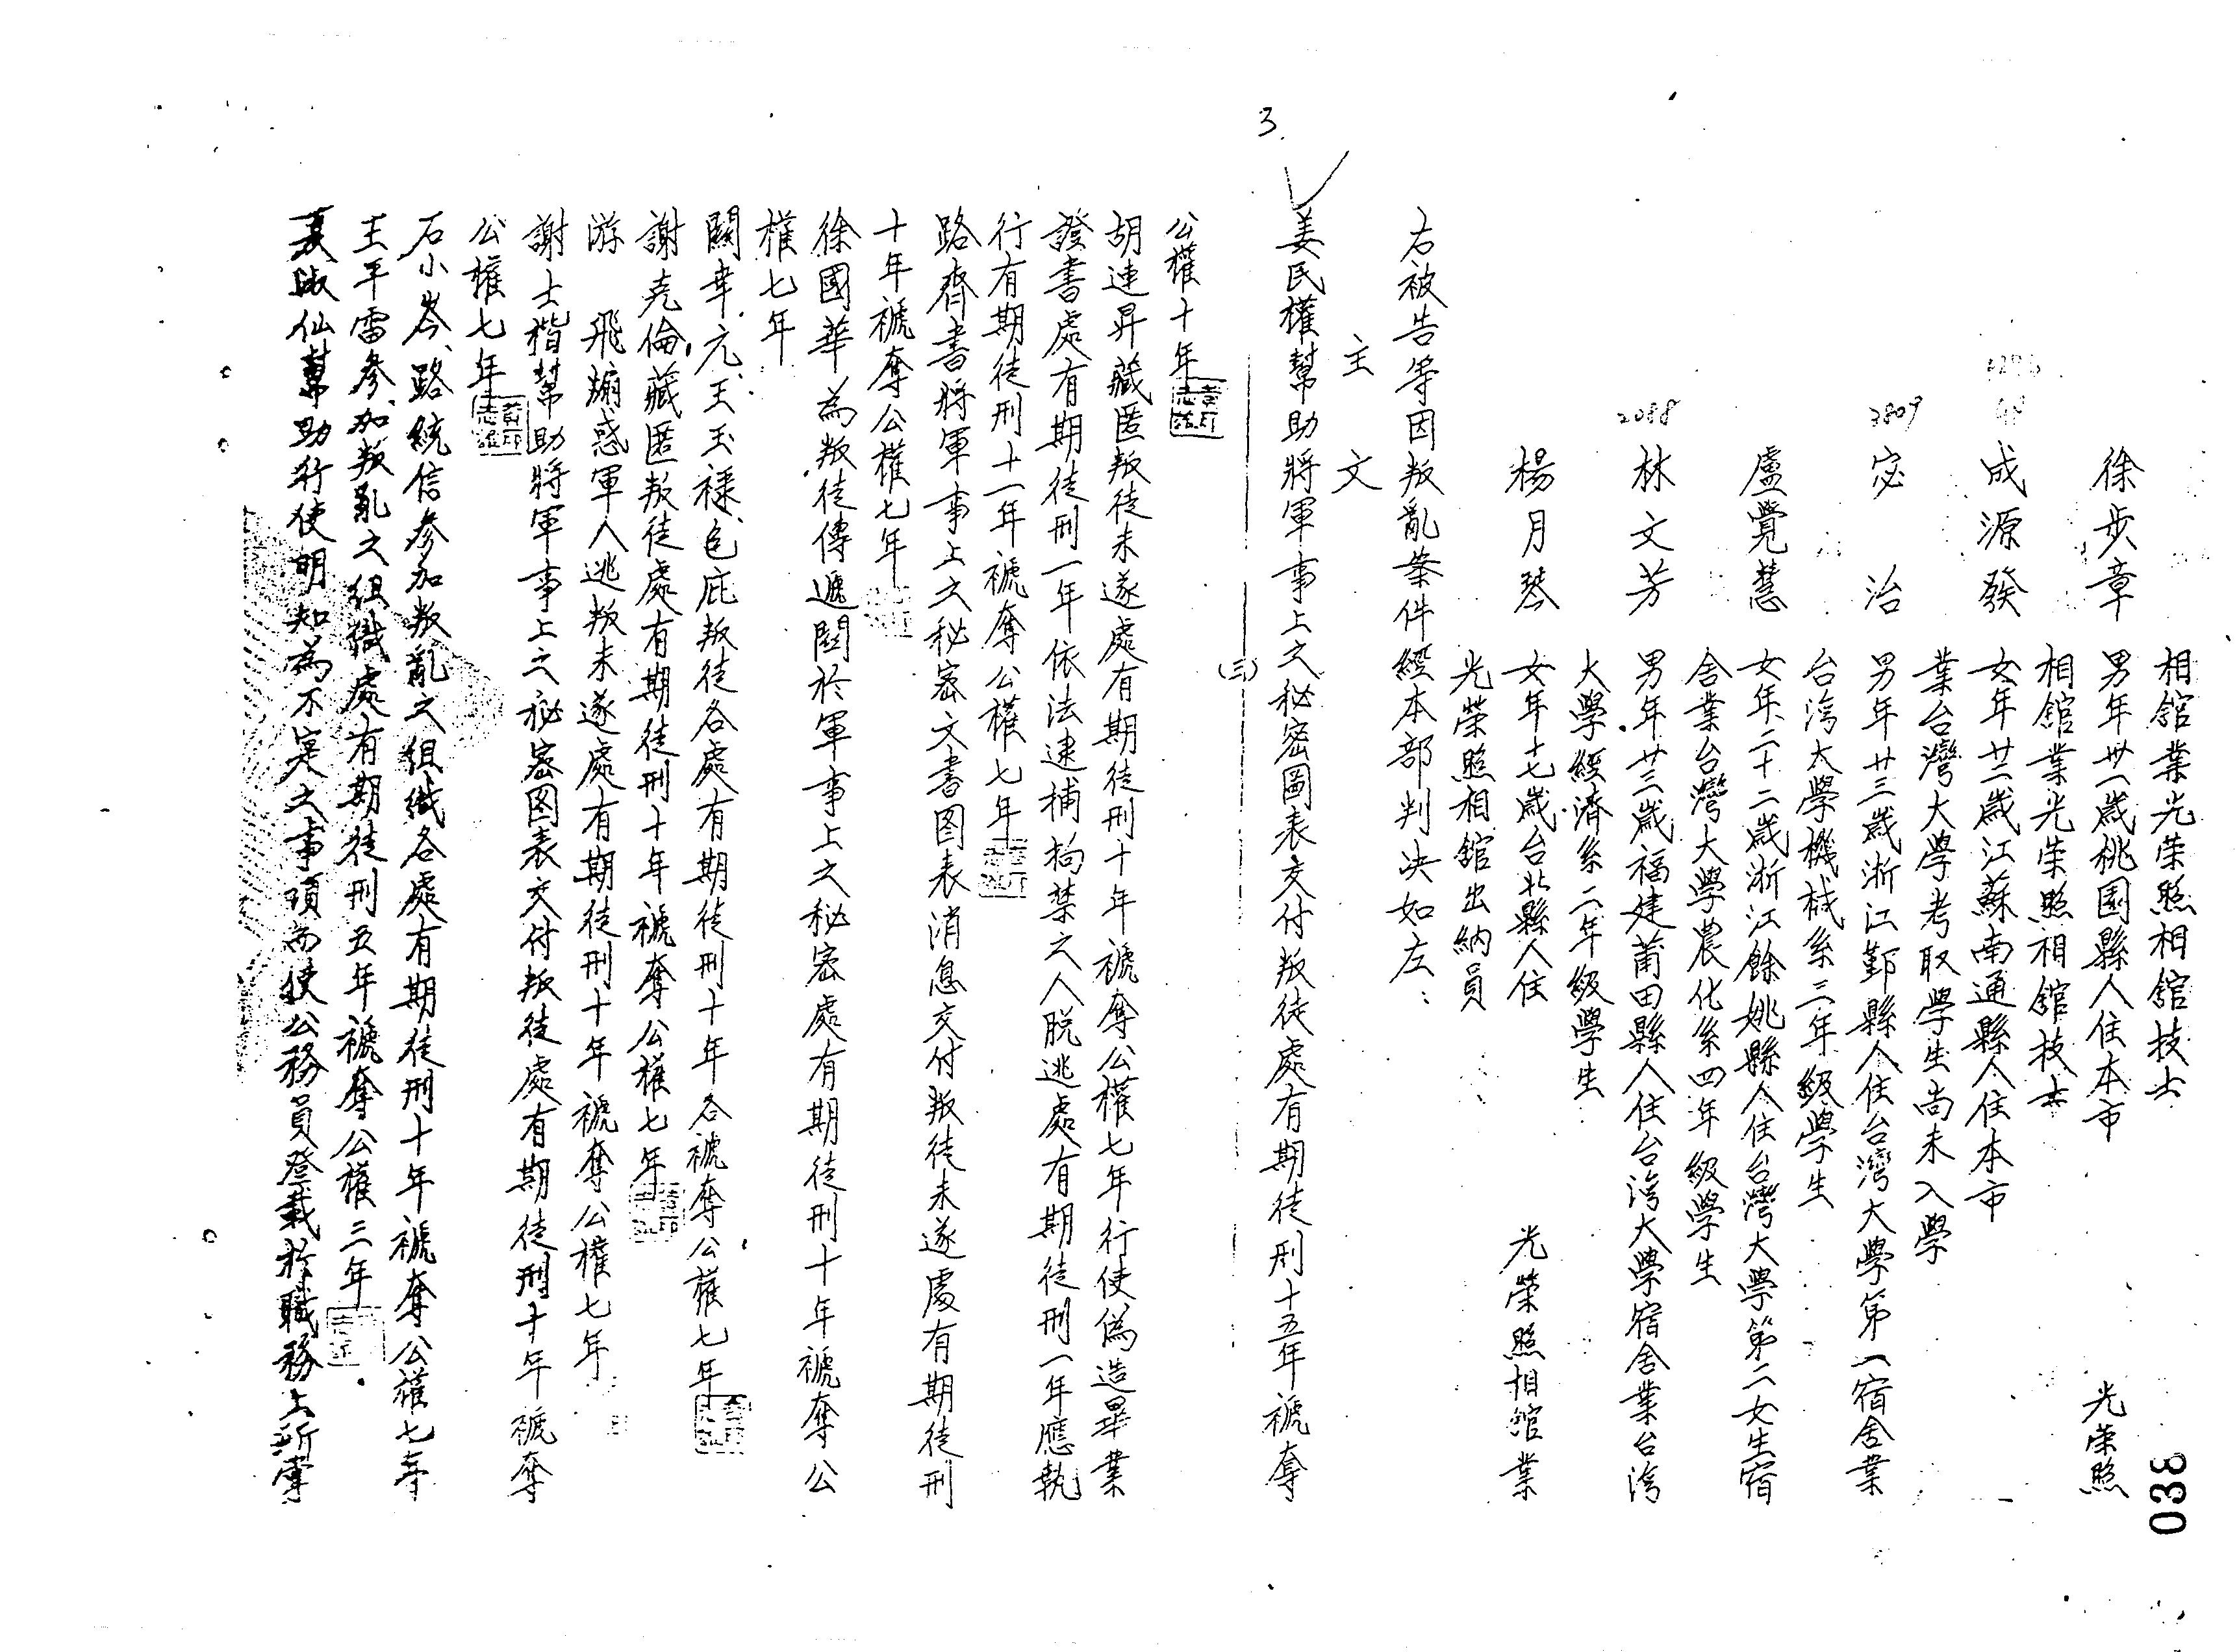 相館業光荣照相舘技士
徐步章 男年卅一歲桃園縣人住本市 光荣照
相館業光荣照相舘技士
成源發 女年廿二歲江蘇南通縣人住本市
業台灣大学考取学生尚未入學
2809 宓 治 男年廿三歲浙江鄞縣人住台灣大學第一宿舍業
台湾大學機械系三年級學生
盧覺慧 女年二十二歲浙江餘姚縣人住台灣大學第二女生宿
舍業台灣大學農化系四年級學生
2088 林文芳 男年廿三歲福建莆田縣人住台湾大學宿舍業台湾
大學經濟系二年級學生
楊月琴 女年十七歲台北縣人住 光榮照相舘業
光榮照相舘出納員
右被告等因叛亂案件經本部判决如左：
主 文
3.
姜民權幫助將軍事上之秘密圖表交付叛徒處有期徒刑十五年褫奪
(三)
公權十年
胡連昇藏匿叛徒未遂處有期徒刑十年褫奪公權七年行使偽造畢業
證書處有期徒刑一年依法逮捕拘禁之人脱逃處有期徒刑一年應執
行有期徒刑十一年褫奪公權七年
路齊書將軍事上之秘密文書图表消息交付叛徒未遂處有期徒刑
十年褫奪公權七年
徐國華為叛徒傳遞関於軍事上之秘密處有期徒刑十年褫奪公
權七年
闕幸元、王玉祿、包庇叛徒各處有期徒刑十年各褫奪公權七年
謝克倫藏匿叛徒處有期徒刑十年褫奪公權七年
游 飛煽惑軍人逃叛未遂處有期徒刑十年褫奪公權七年
謝士楷幫助將軍事上之秘密图表交付叛徒處有期徒刑十年褫奪
公權七年
石小岑、路統信参加叛亂之组織各處有期徒刑十年褫奪公權七年
王平雷参加叛亂之组織處有期徒刑五年褫奪公權三年
夏淑仙幫助行使明知為不实之事項而使公務員登载於職務上所掌
038